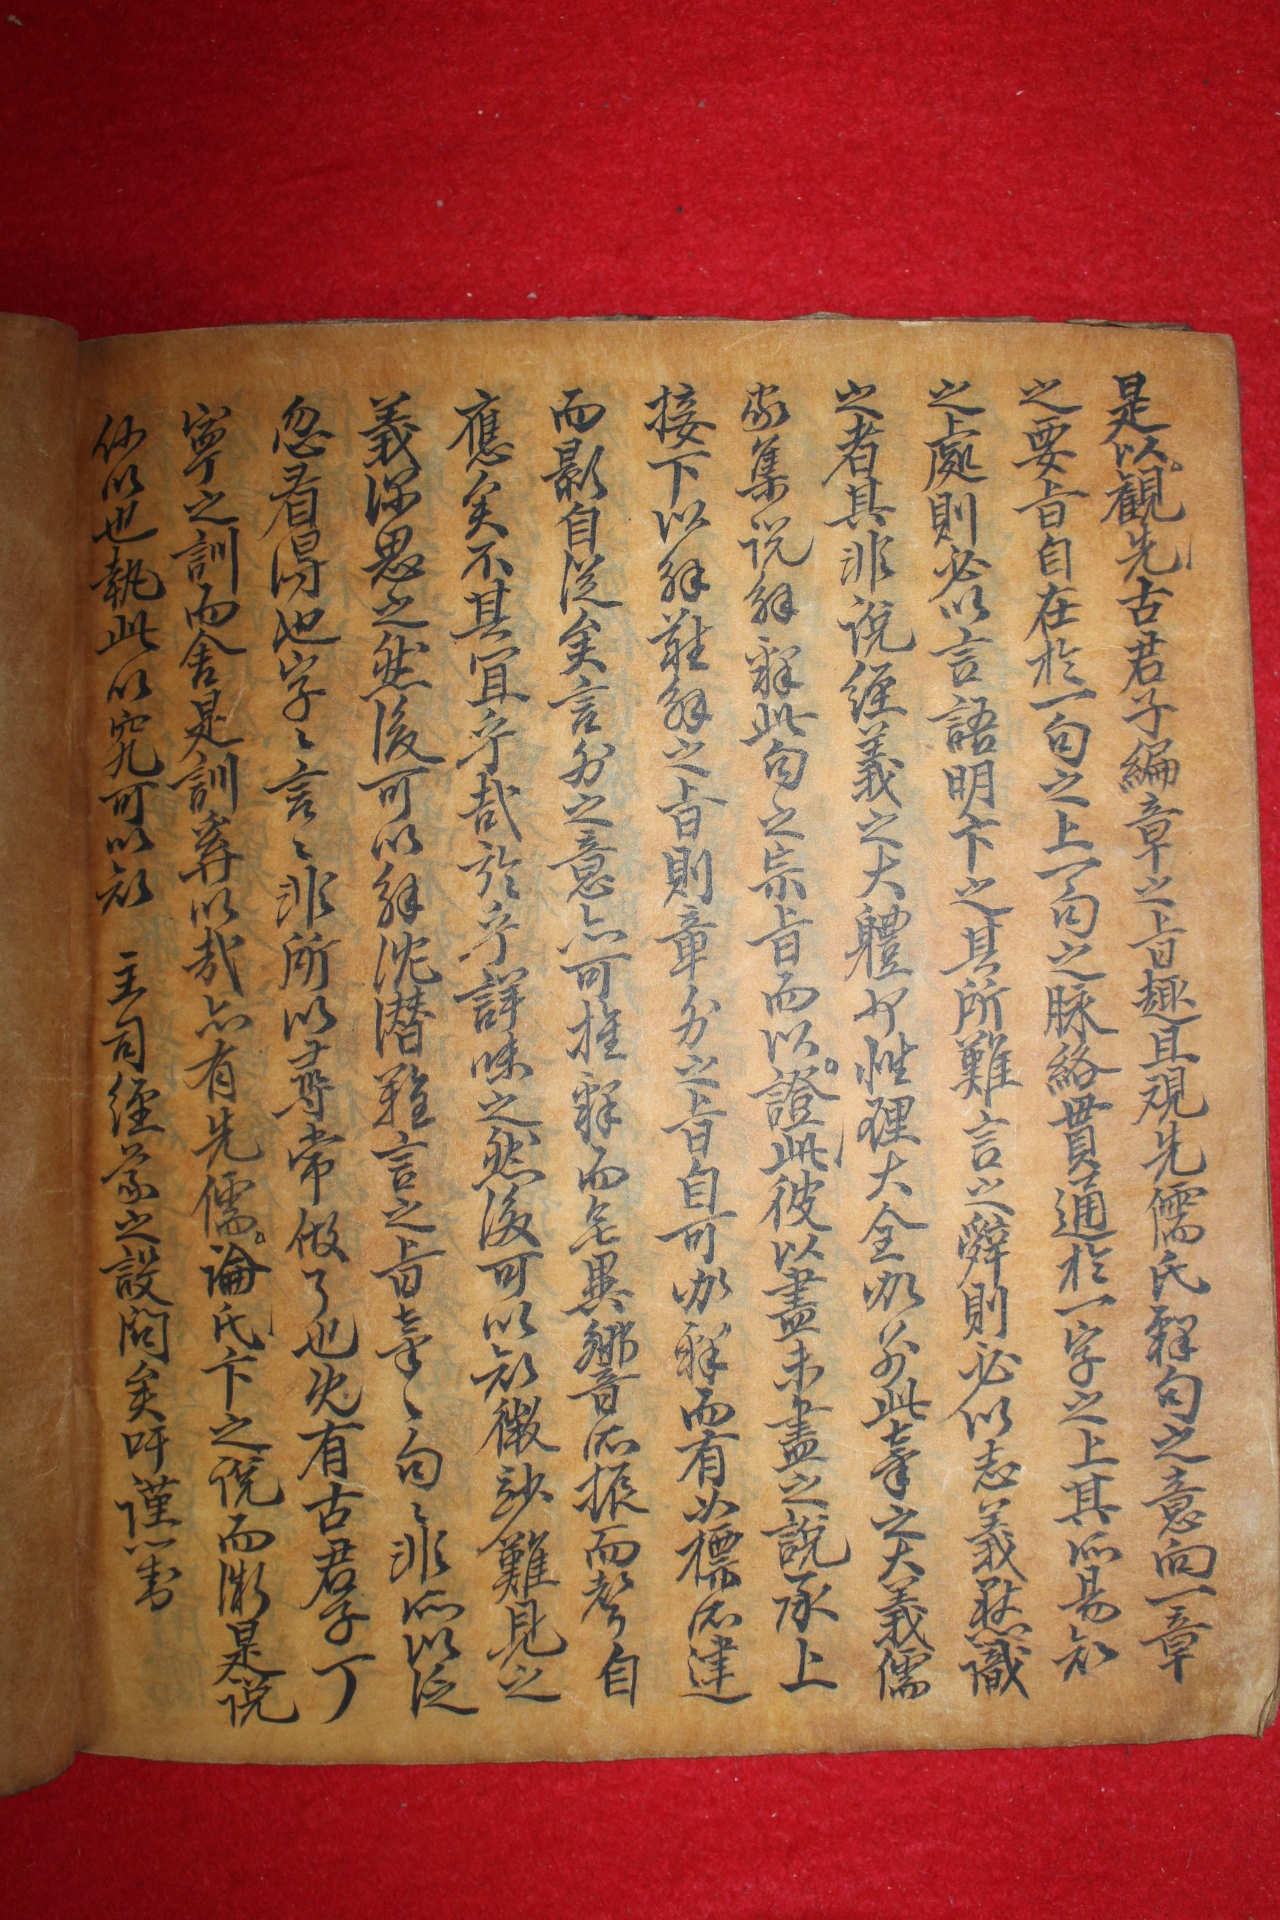 是以觀先古君子編章之旨趣且观先儒氏釋句之意向一章
之要旨自在於一句之上一句之脉絡貫通於一字之上其所易知
之上處則必以言語明卞之其所難言之辭則必以志義默識
之者其非說經義之大軆以性理大全如於此章之大義儒
家集说解釋此句之宗旨而以證此彼以盡未盡之說承上
接下以解難解之旨則章外之旨自可如釋而有如標所建
而影自從矣言外之意亦可推釋而無異響所振而聲自
應矣不其宜乎哉於乎詳味之然後可以知微玅難見之
義深思之然後可以解沈潛難言之旨章〻句〻非所以泛
忽看得也字〻言〻非所以尋常做了也先有古君子丁
寧之訓而舍是訓奚以哉亦有先儒論氏卞之说而微是说
何以也執此以究可以知 主司經義之設問矣吁謹對